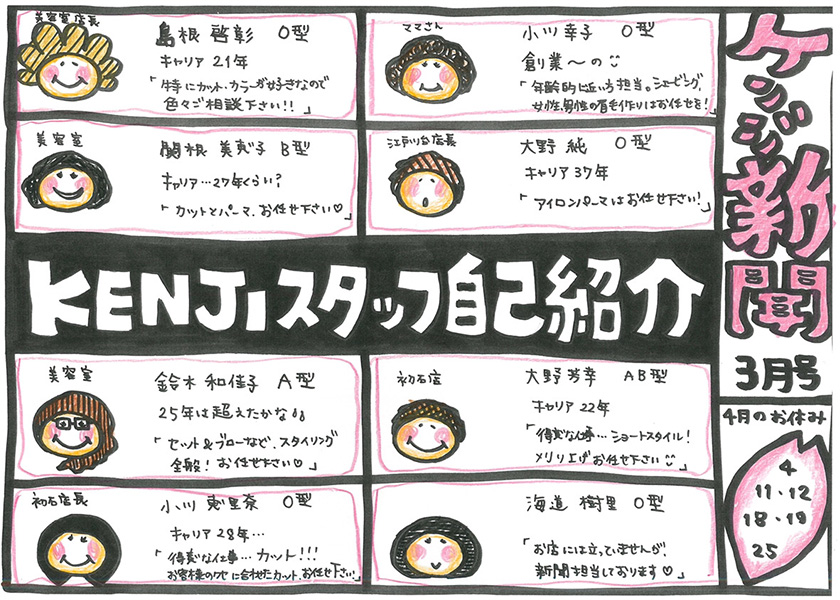 ケンジ新聞
3月号
4月のお休み
4
11・12
18・19
25
KENJIスタッフ自己紹介
美容室店長
島根 啓彰 O型
キャリア 21年
「特にカット・カラーが好きなので
色々ご相談下さい!!」
ママさん
小川 幸子 O型
創業〜の
「年齢的に近い方担当。シェービング、
女性、男性の眉毛作りはお任せを!」
美容室
関根 美恵子 B型
キャリア…27年くらい?
「カットとパーマ、お任せ下さい♡」
江戸川台店長
大野 純 O型
キャリア37年
「アイロンパーマはお任せ下さい!」
美容室
鈴木 和佳子 A型
25年は超えたかな
「セット&ブローなど、スタイリング
全般! お任せ下さい♡」
初石店
大野芳幸 AB型
キャリア 22年
「得意な仕事…ショートスタイル!
メリリ上げお任せ下さい」
初石店長
小川 恵里奈 O型
キャリア 28年…
「得意な仕事… カット!!!
お客様のクセに合わせたカット、お任せ下さい」
海道 樹里 O型
「お店には立っていませんが、
新聞担当しております♡」